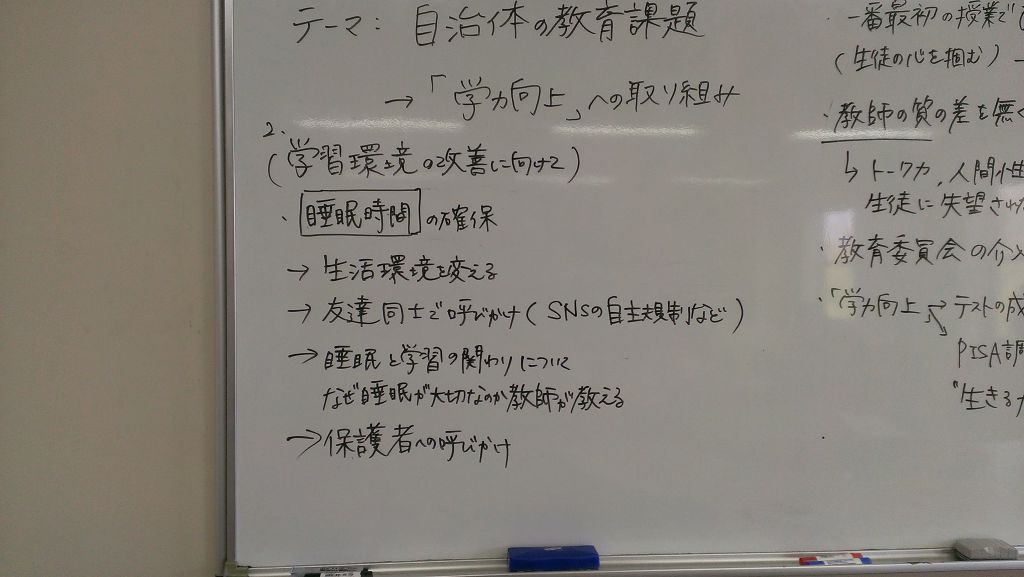 テーマ: 自治体の教育課題
→「学力向上」への取り組み
2.
(学習環境の改善に向けて)
・睡眠時間の確保
→ 生活環境を変える
→ 友達同士で呼びかけ(SNSの自主規制など)
→ 睡眠と学習の関わりについて
なぜ睡眠が大切なのか教師が教える
→ 保護者への呼びかけ
・一番最初の授業で
(生徒の心を掴む) →
・教師の質の差を無く
↳ トーク力, 人間性
生徒に失望され
・教育委員会の介入
・「学力向上」→ テストの成
↘ PISA調
"生きる力